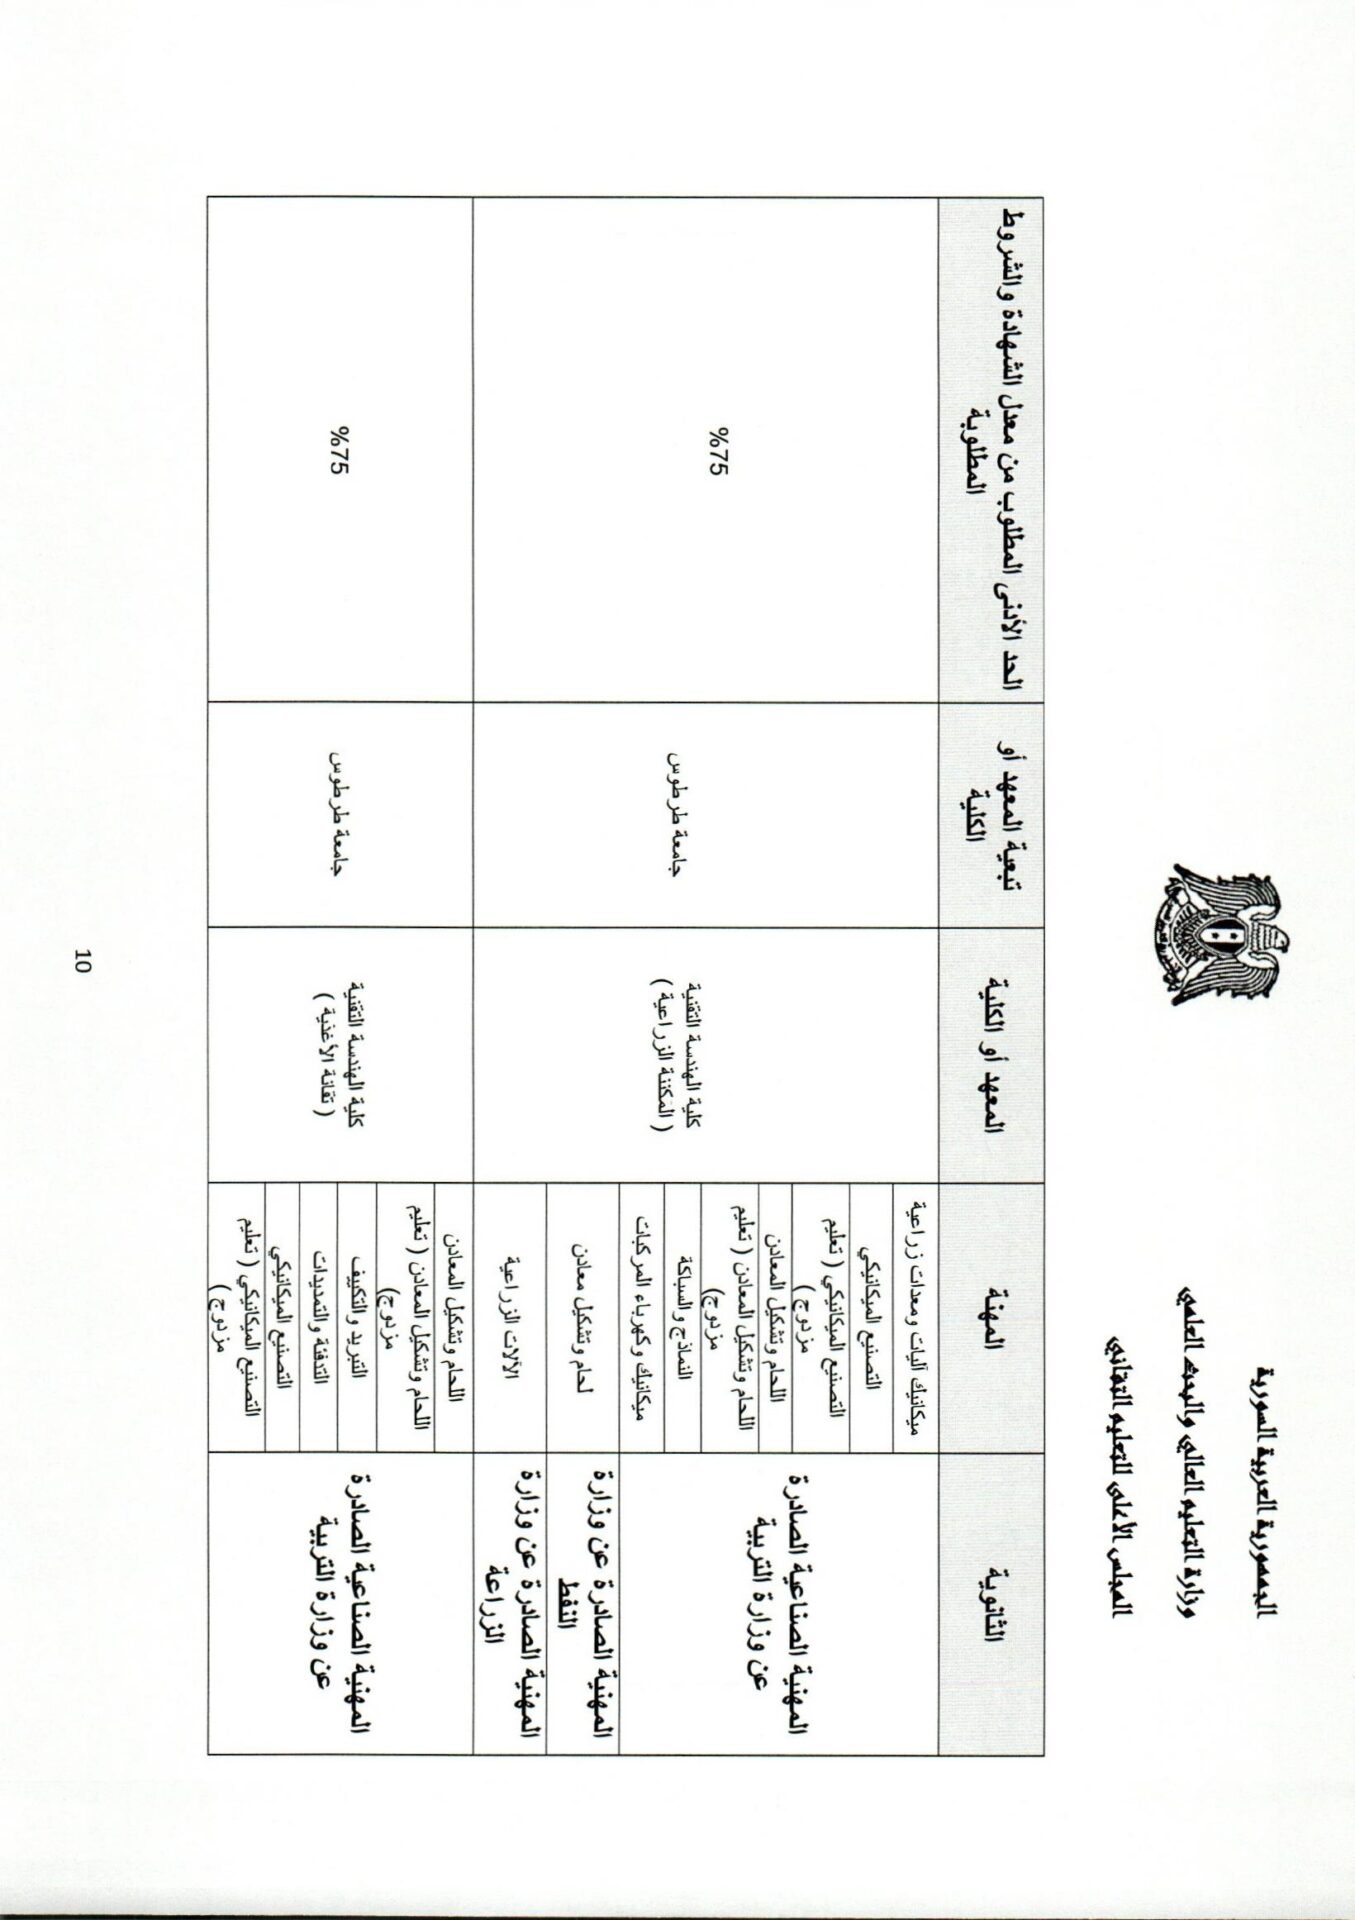 الجمهورية العربية السورية
وزارة التعليم العالي والبحث العلمي
المجلس الأعلى للتعليم التقاني
الثانوية
المهنة
المعهد أو الكلية
تبعية المعهد أو
الكلية
الحد الأدنى المطلوب من معدل الشهادة والشروط
المطلوبة
المهنية الصناعية الصادرة
عن وزارة التربية
ميكانيك آليات ومعدات زراعية
التصنيع الميكانيكي
التصنيع الميكانيكي ( تعليم
مزدوج )
اللحام وتشكيل المعادن
اللحام وتشكيل المعادن ( تعليم
مزدوج)
النماذج والسباكة
ميكانيك وكهرباء المركبات
المهنية الصادرة عن وزارة
النفط
لحام وتشكيل معادن
المهنية الصادرة عن وزارة
الزراعة
الآلات الزراعية
كلية الهندسة التقنية
( المكننة الزراعية )
جامعة طرطوس
%75
المهنية الصناعية الصادرة
عن وزارة التربية
اللحام وتشكيل المعادن
اللحام وتشكل المعادن ( تعليم
مزدوج)
التبريد والتكييف
التدفئة والتمديدات
التصنيع الميكانيكي
التصنيع الميكانيكي ( تعليم
مزدوج )
كلية الهندسة التقنية
( تقانة الأغذية )
جامعة طرطوس
%75
10